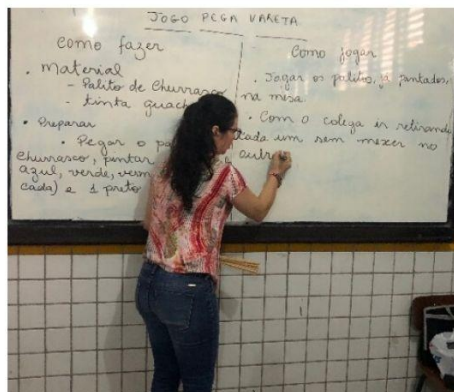 JOGO PEGA VARETA
como fazer
. material
- Palito de Churrasco
- tinta guach
. Preparar
. Pegar o pa
churrasco, pintar
azul, verde, verm
cada) e 1 preto
Como jogar
. Jogar os palitos, já pintados,
na mesa.
. Com o colega ir retirando
cada um sem mexer no
outro